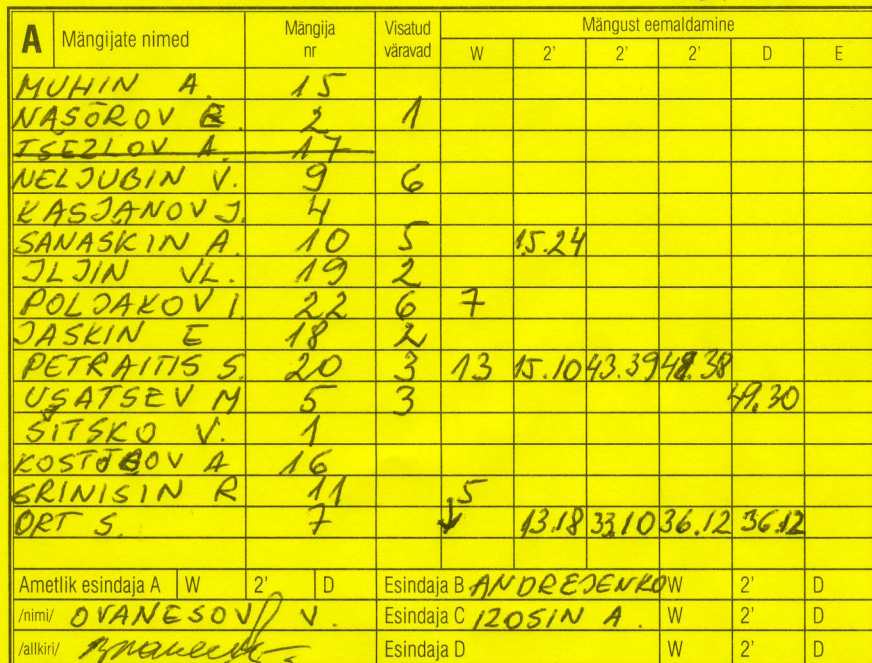 A Mängijate nimed Mängija nr Visatud väravad Mängust eemaldamine
W 2' 2' 2' D E
MUHIN A. 15
NASÕROV E. 2 1
TŠEZLOV A. 17
NELJUBIN V. 9 6
KASJANOV J. 4
SANASKIN A. 10 5 15.24
ILJIN VL. 19 2
POLJAKOV I 22 6 7
JASKIN E 18 2
PETRAITIS S. 20 3 13 15.10 43.39 48.38
USATSEV M 5 3 49.30
ŠITSKO V. 1
A 16
GRINISIN R 11 5
ORT S. 7 ↓ 13.18 33.10 36.12 36.12
Ametlik esindaja A W 2' D Esindaja B ANDREJENKO W 2' D
/nimi/ OVANESOV V. Esindaja C IZOSIN A. W 2' D
/allkiri/ Esindaja D W 2' D